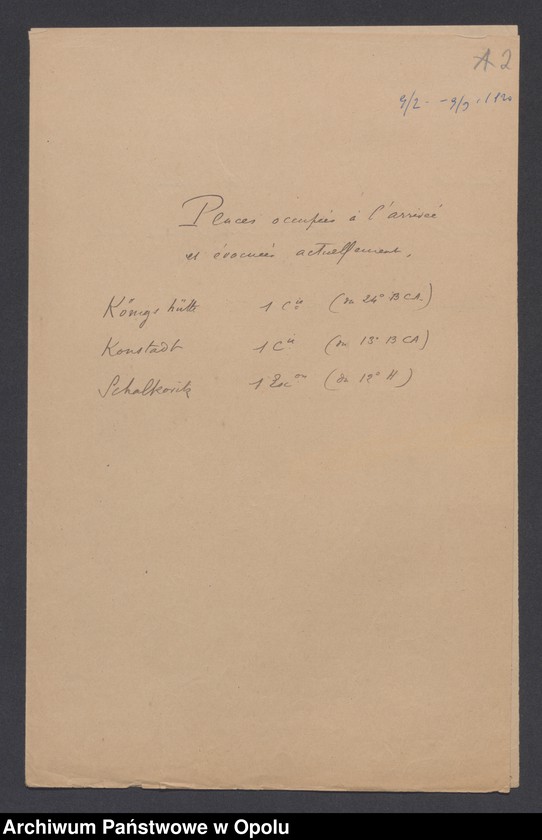 A 2
9/2 - 9/3 1920
Places occupées à l'arrivée
et évacuées actuellement.
Königshütte 1 Cie (du 24e BCA)
Konstadt 1 Cie (du 13e BCA)
Schalkovitz 1 Escon (du 12e H)
Archiwum Państwowe w Opolu